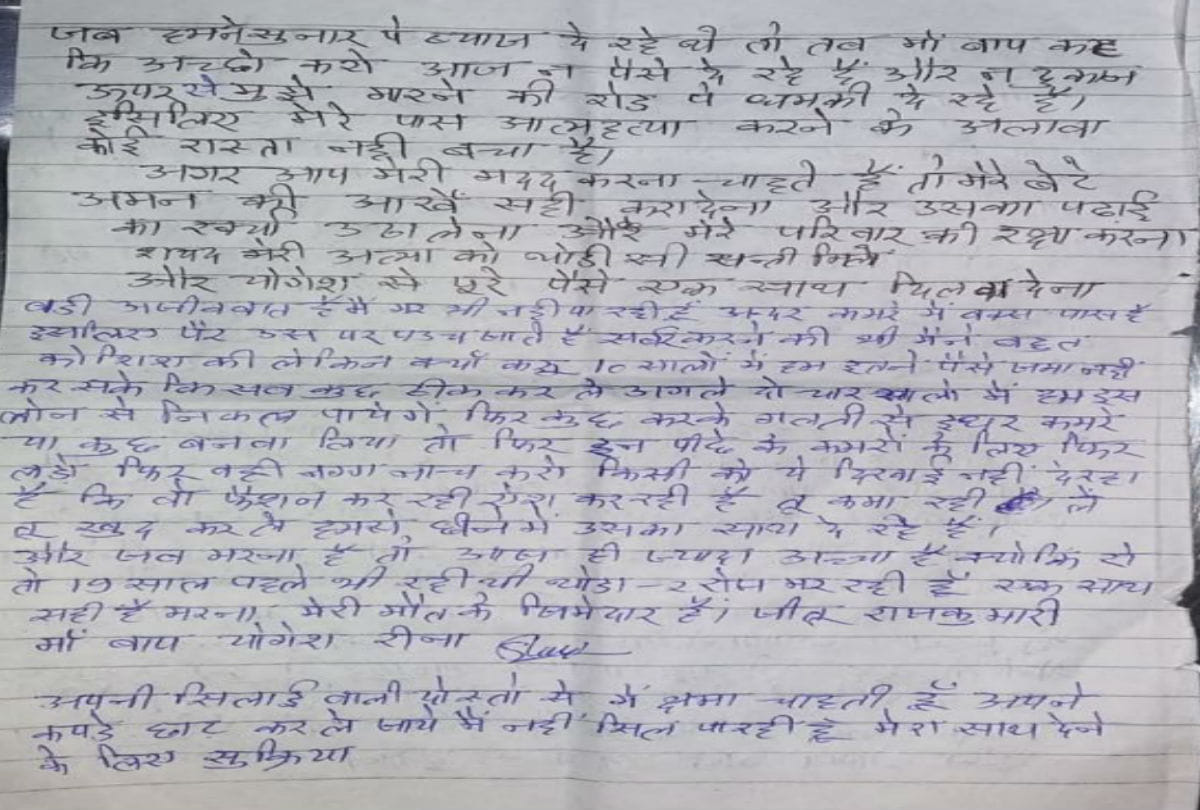 जब हमने सुनार पे ब्याज दे रहे थे तो तब माँ बाप कह
कि अच्छो करो आज न पैसे दे रहे हैं और न दुकान
ऊपर से मुझे मारने की रोड पे धमकी दे रहे है।
इसिलिए मेरे पास आत्महत्या करने के अलावा
कोई रास्ता नही बचा है।
अगर आप मेरी मदद करना चाहते हैं तो मेरे बेटे
अमन की आखें सही करा देना और उसका पढाई
का खर्चा उठा लेना और मेरे परिवार की रक्षा करना।
शायद मेरी अत्मा को थोडी सी सन्ती मिले
और योगेश से पूरे पैसे एक साथ दिलवा देना
बडी अजीब बात है मैं मर भी नही पा रही हूँ अन्दर कमरे में बक्स पास है
इसालिए पैर उस पर पहुच जाते है सर्व करने की भी मैंने बहुत
कोशिश की लेकिन क्यों करू 10 सालों में हम इतने पैसे जमा नही
कर सके कि सब कुछ ठीक कर ले अगले दो चार सालो में हम इस
लोन से निकल पायेगें फिर कुछ करके गलती से इधर कमरे
या कुछ बनवा लिया तो फिर इन पीछे के कमरों के लिए फिर
लडो फिर वही नग्गा नाच करो किसी को ये दिखाई नही दे रहा
है कि वो फैशन कर रही ऐश कर रही है तू कमा रही ले
तू खुद कर ले हमसे छीनने में उसका साथ दे रहे हैं।
और जब मरना है तो आज ही ज्यादा अच्छा है क्योकि रो
तो 19 साल पहले भी रही थी थोडा-2 रोज मर रही हूँ एक साथ
सही है मरना, मेरी मौत के जिमेदार है। जीतू राजकुमारी
माँ बाप योगेश रीना
अपनी सिलाई वाली दोस्तो से मैं क्षमा चाहती हूँ अपने
कपडे छाट कर ले जाये मैं नही सिल पा रही हूँ मेरा साथ देने
के लिए सुक्रिया